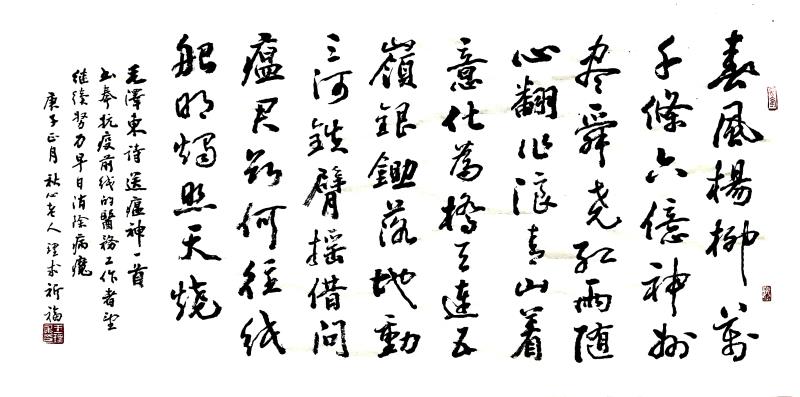 春風楊柳萬
千條六億神州
尽舜尧红雨随
心翻作浪青山着
意化為橋天連五
嶺銀鋤落地動
三河鉄臂摇借問
瘟君欲何往纸
船明燭照天燒
毛澤東诗送瘟神一首
书奉抗疫前线的醫務工作者望
继续努力早日消除病魔
庚子正月秋心老人理求祈福